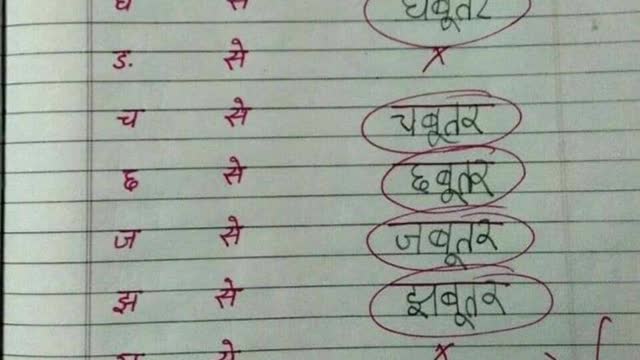 घ से घबूतर
ङ से x
च से चबूतर
छ से छबूतर
ज से जबूतर
झ से झबूतर
से x